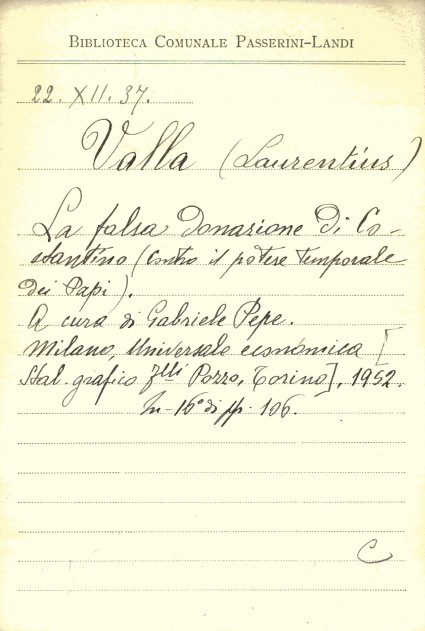 BIBLIOTECA COMUNALE PASSERINI-LANDI
22. XII. 37.
Valla (Laurentius)
La falsa Donazione Di Co-
stantino (Contro il potere temporale
dei Papi).
A cura di Gabriele Pepe.
Milano, Universale economica [
Stal. grafico Flli Pozzo, Torino], 1952.
In-16° di pp. 106.
C